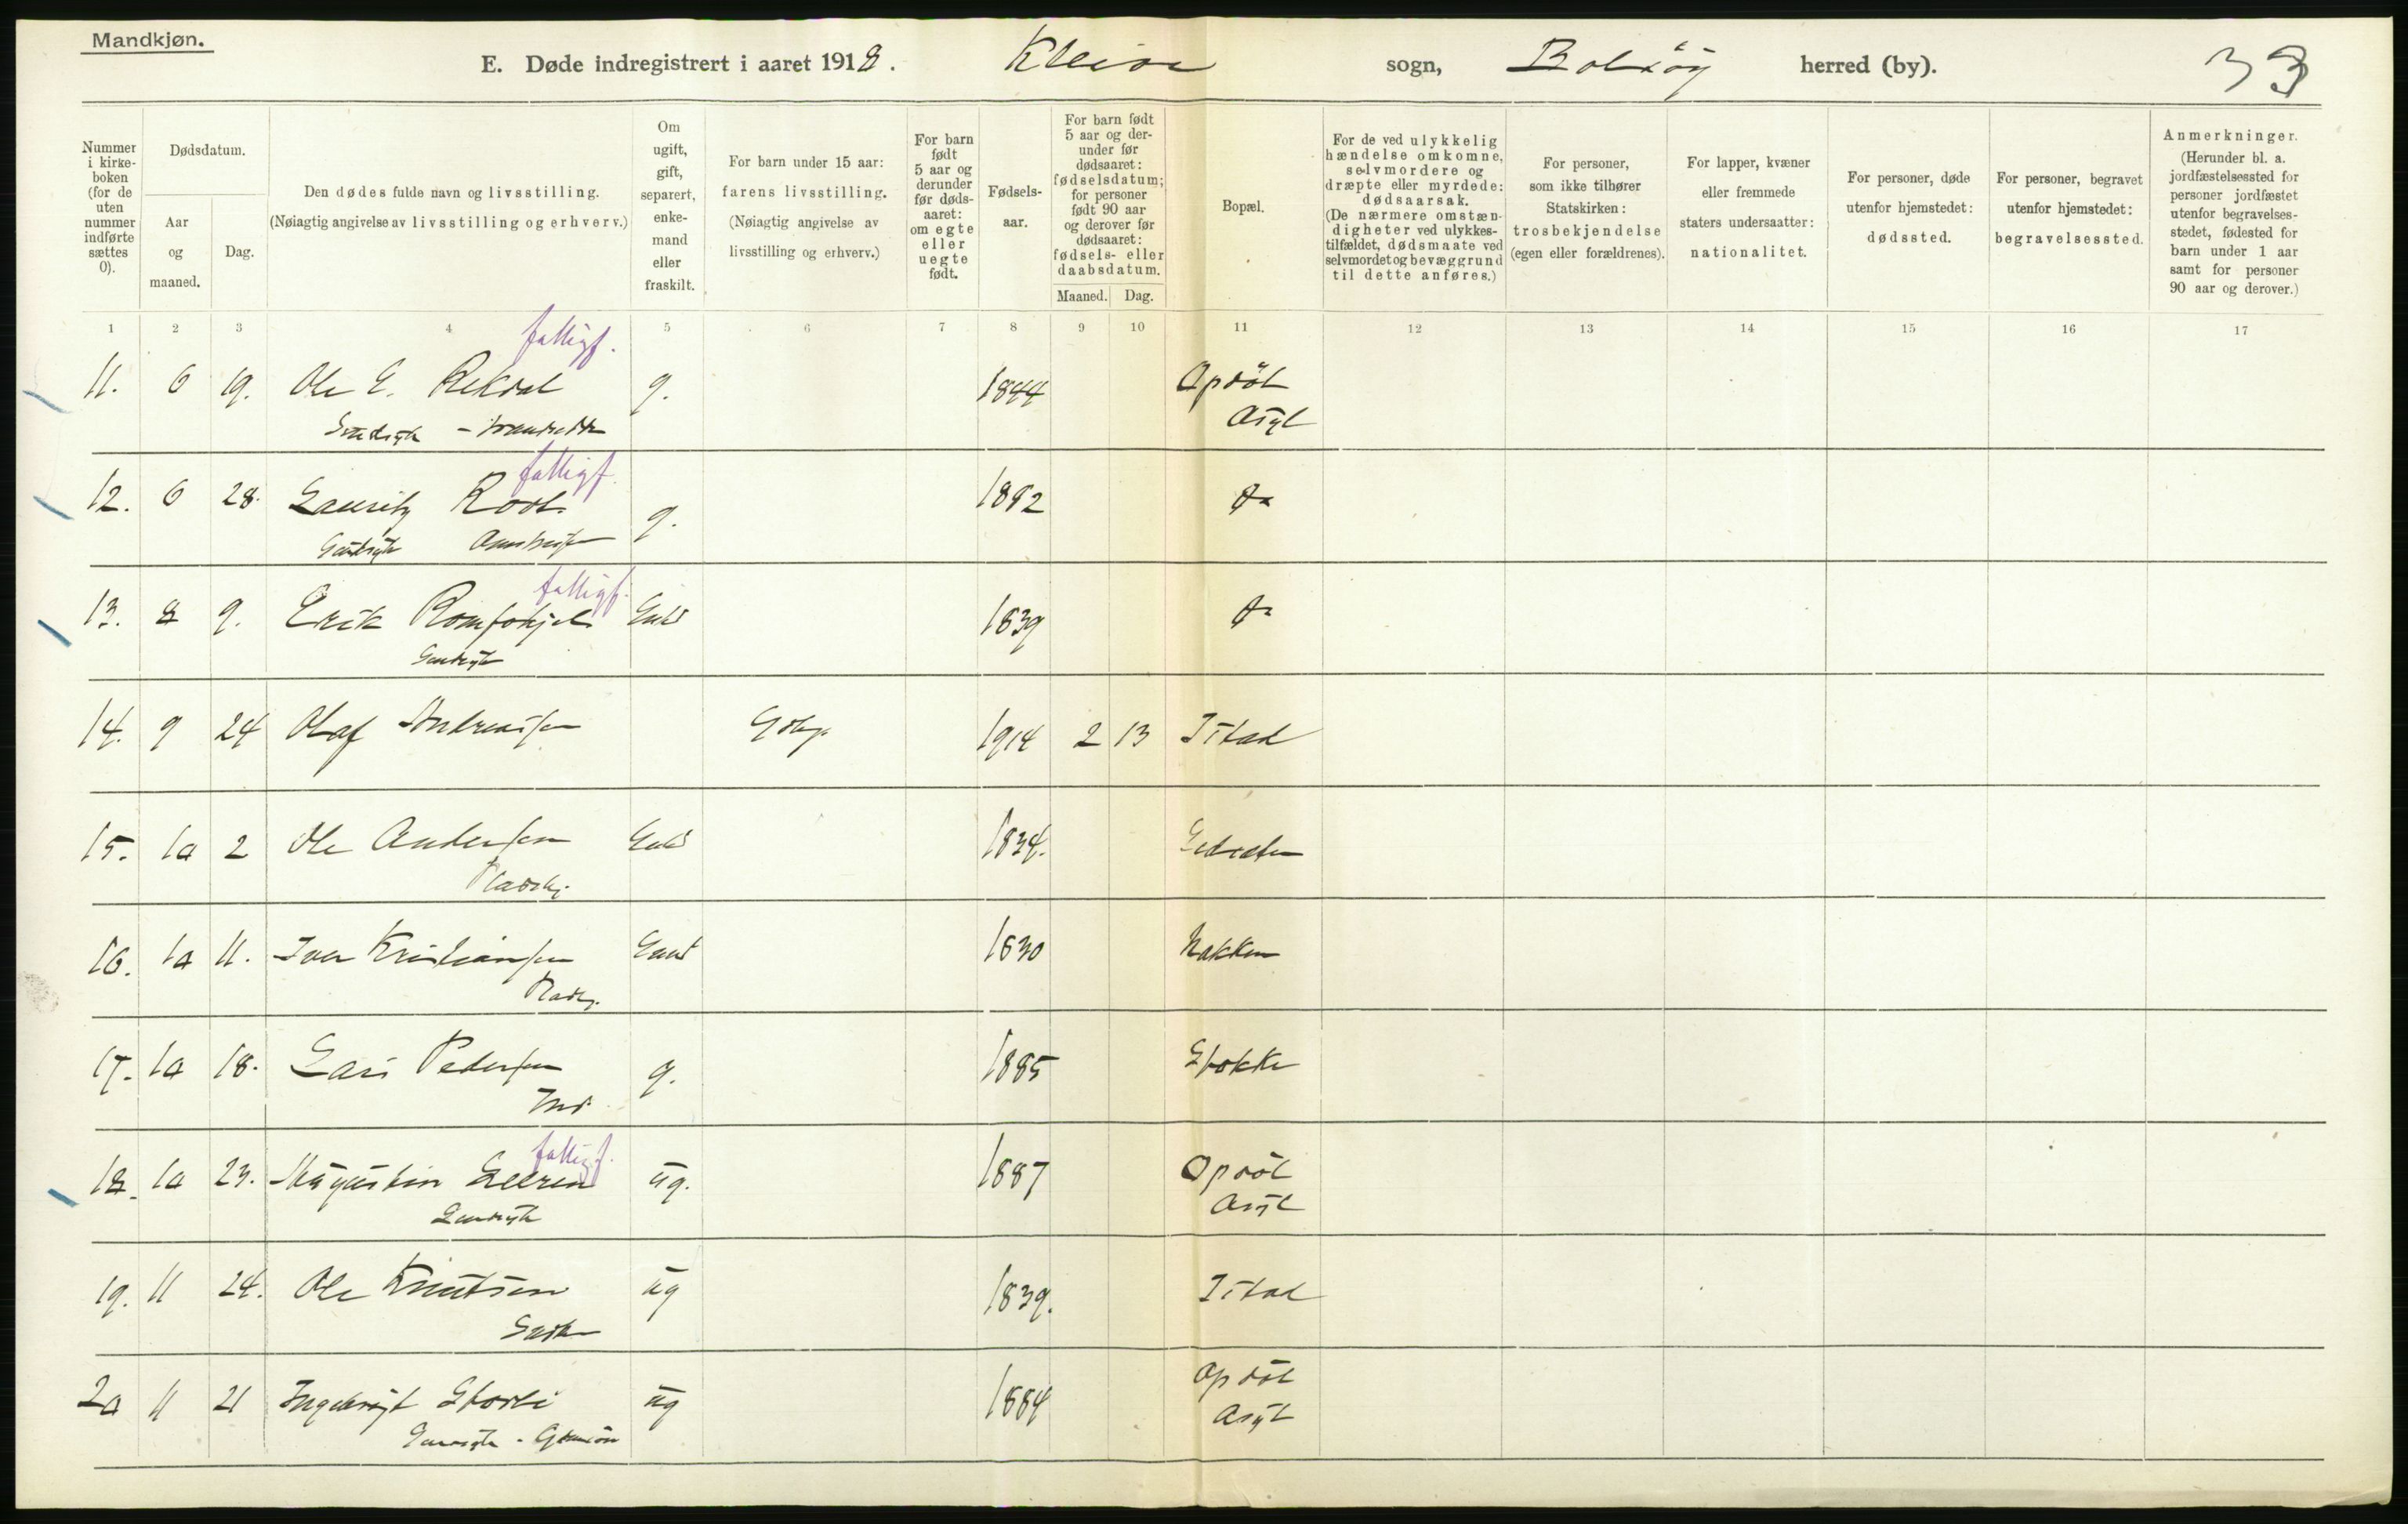 Mandkjøn.
E. Døde indregistrert i aaret 1918. Kleive sogn, Bolsøy herred (by). 33
Nummer i kirkeboken (for de uten nummer indførte sættes 0).
Dødsdatum.
Aar og maaned.
Dag.
Den dødes fulde navn og livsstilling.
(Nøiagtig angivelse av livsstilling og erhverv.)
Om ugift, gift, separert, enkemand eller fraskilt.
For barn under 15 aar: farens livsstilling.
(Nøiagtig angivelse av livsstilling og erhverv.)
For barn født 5 aar og derunder før dødsaaret: om egte eller uegte født.
Fødselsaar.
For barn født 5 aar og derunder før dødsaaret: fødselsdatum; for personer født 90 aar og derover før dødsaaret: fødsels- eller daabsdatum.
Maaned. Dag.
Bopæl.
For de ved ulykkelig hændelse omkomne, selvmordere og dræpte eller myrdede: dødsaarsak.
(De nærmere omstændigheter ved ulykkestilfældet, dødsmaate ved selvmordet og bevæggrund til dette anføres.)
For personer, som ikke tilhører Statskirken: trosbekjendelse (egen eller forældrenes).
For lapper, kvæner eller fremmede staters undersaatter: nationalitet.
For personer, døde utenfor hjemstedet: dødssted.
For personer, begravet utenfor hjemstedet: begravelsessted.
Anmerkninger.
(Herunder bl. a. jordfæstelsessted for personer jordfæstet utenfor begravelsesstedet, fødested for barn under 1 aar samt for personer 90 aar og derover.)
1 2 3 4 5 6 7 8 9 10 11 12 13 14 15 16 17
fattigf.
11. 6 19. Ole E. Rekdal g. 1844 Opdöl
Sindsyk Asyl
fattigf.
12. 6 28. Lauritz Rød g. 1892
Sindsyk
fattigf.
13. 8 9. Erik Romfohjel Enkd 1839
Sindsyk
14. 9 24 Olaf Andreassen Gbr. 1914 2 13 Istad
15. 10 2 Ole Andersen Enkd 1834.
Pladsbr.
16. 10 11. Iver Kristiansen Enkd 1830 Nakken
Pladsbr.
17. 10 18. Lars Pedersen g. 1885 Stokke
Ind.
fattigf.
18. 10 23. Augustin Leeren ug. 1887 Opdöl
Sindsyk Asyl
19. 11 24. Ole Knutsen ug 1839. Istad
20 11 21 Ingebrigt Storli ug 1884 Opdöl
Sindsyk Asyl